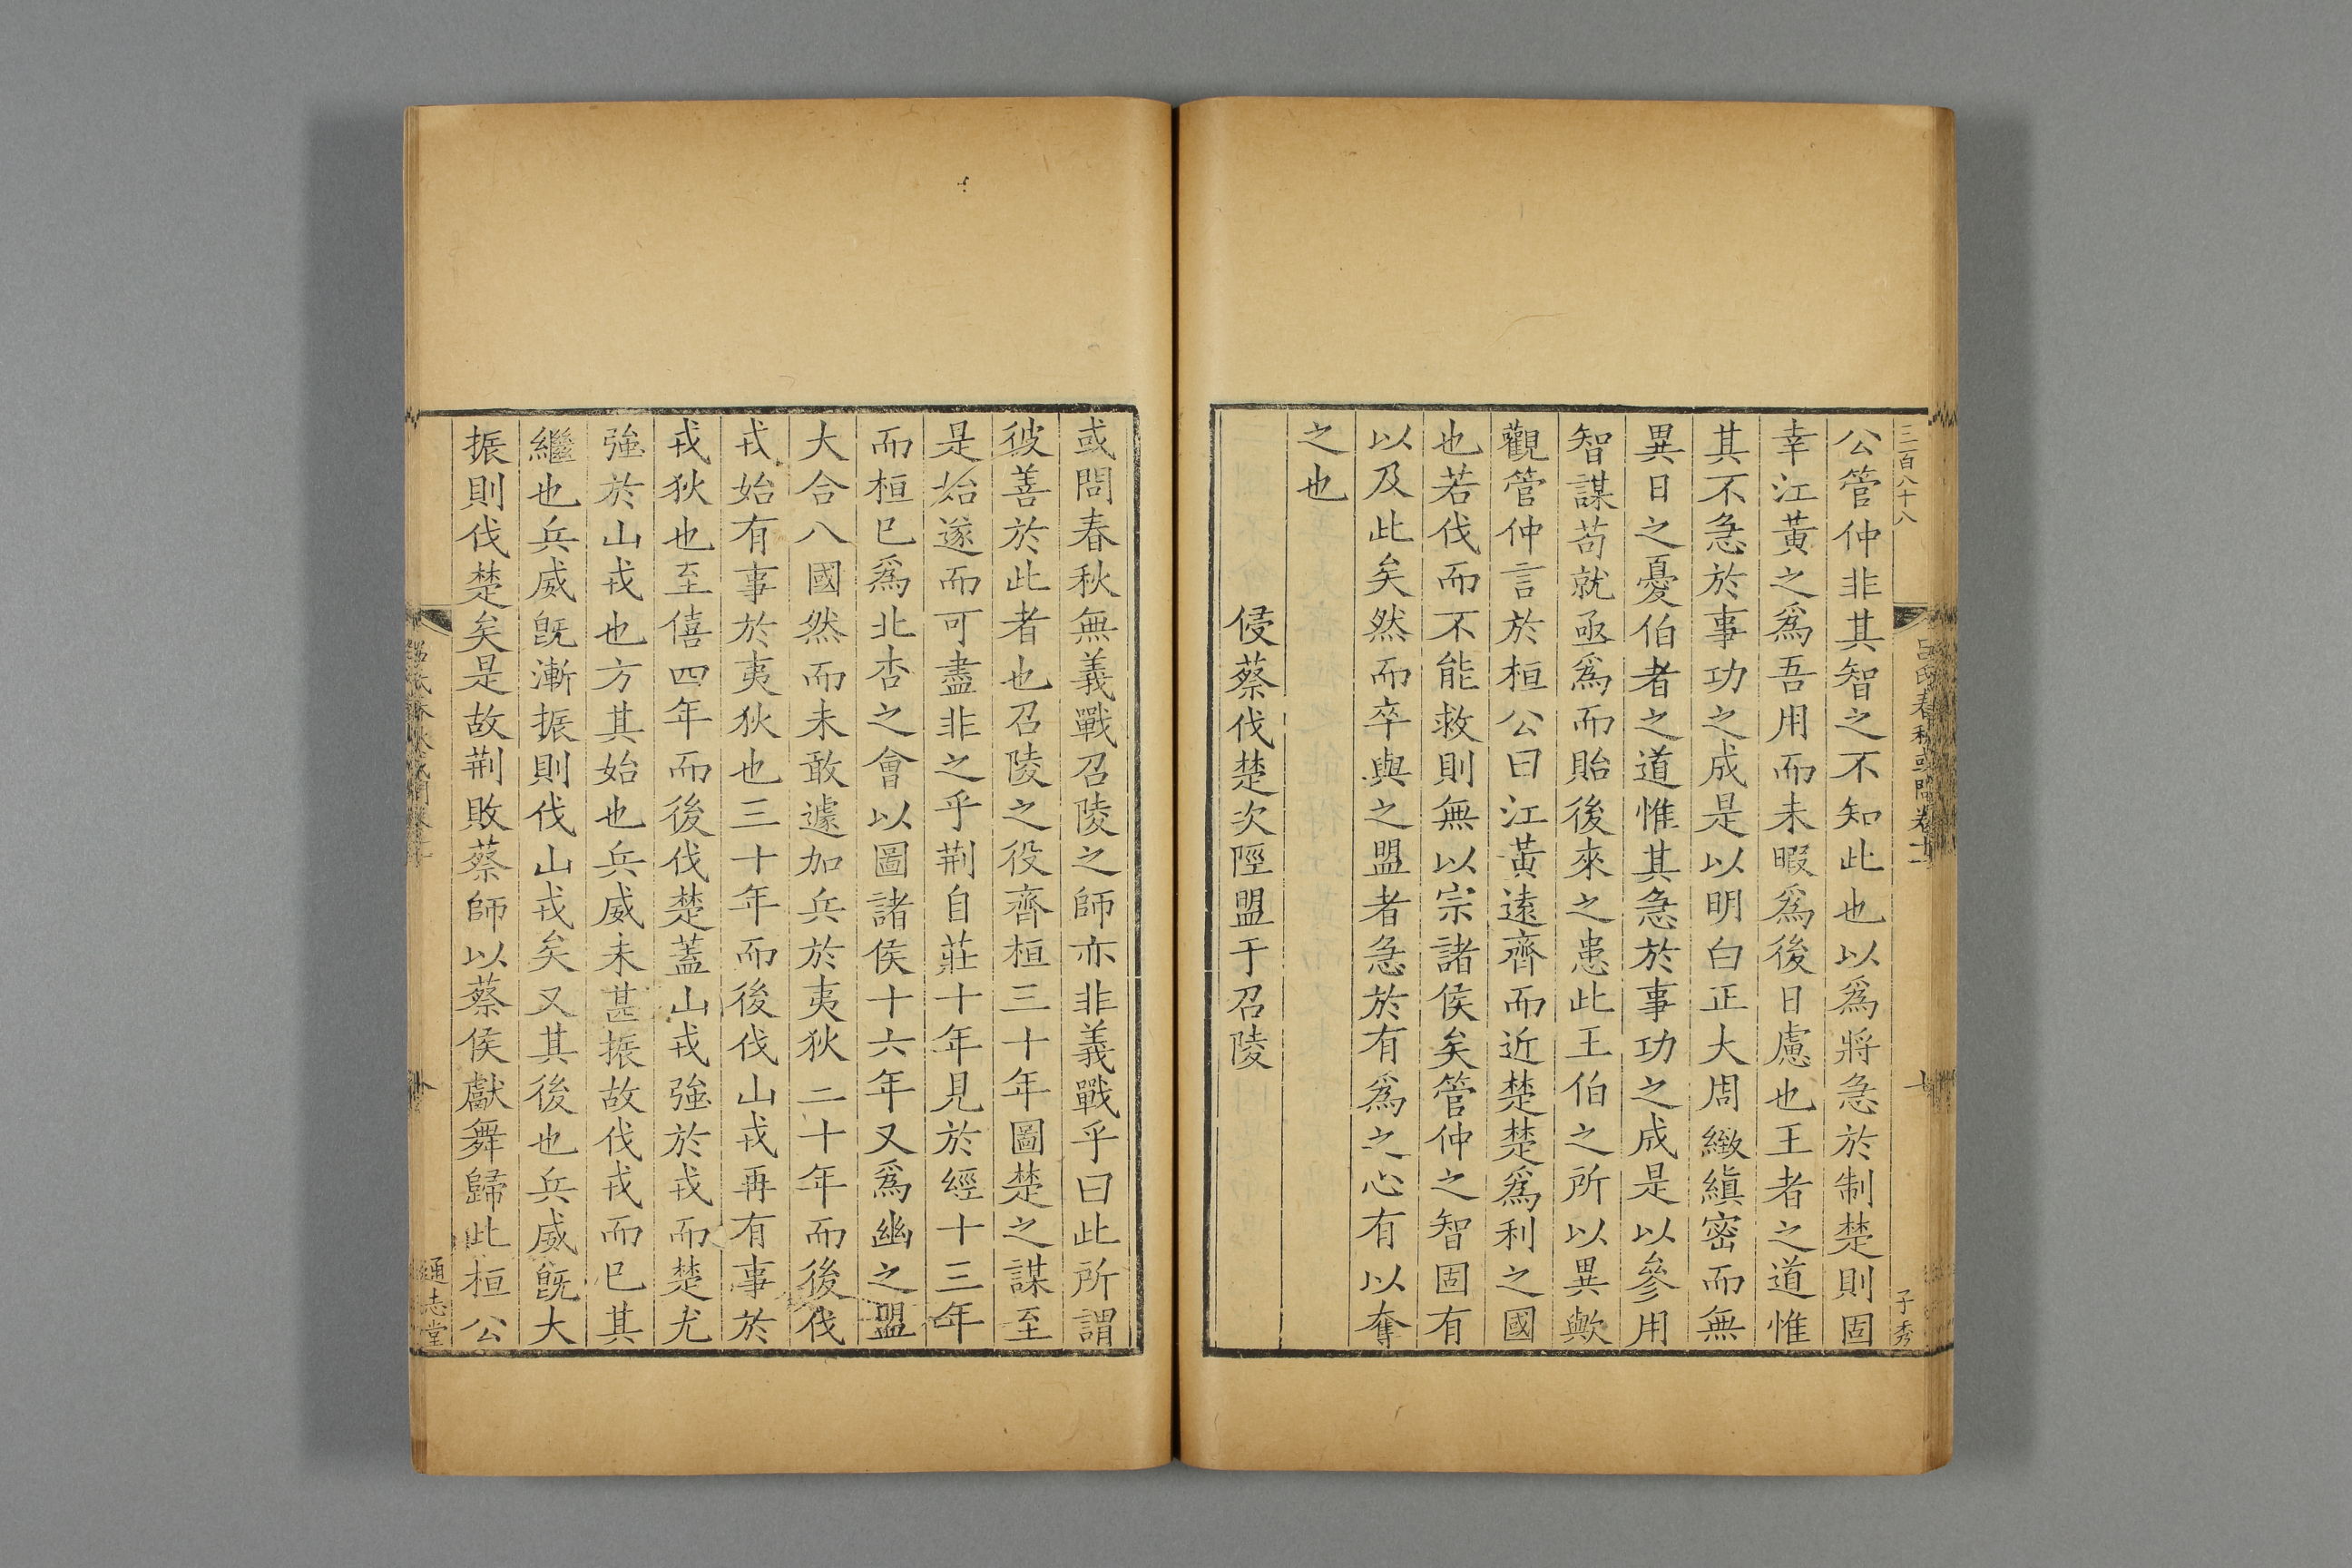 三百八十八
呂氏春秋或問卷十一
子秀
公管仲非其智之不知此也以爲將急於制楚則固
幸江黃之爲吾用而未暇爲後日慮也王者之道惟
其不急於事功之成是以明白正大周緻縝密而無
異日之憂伯者之道惟其急於事功之成是以參用
智謀苟就亟爲而貽後來之患此王伯之所以異歟
觀管仲言於桓公曰江黃遠齊而近楚楚爲利之國
也若伐而不能救則無以宗諸侯矣管仲之智固有
以及此矣然而卒與之盟者急於有爲之心有以奪
之也
侵蔡伐楚次陘盟于召陵
或問春秋無義戰召陵之師亦非義戰乎曰此所謂
彼善於此者也召陵之役齊桓三十年圖楚之謀至
是始遂而可盡非之乎荆自莊十年見於經十三年
而桓巳爲北杏之會以圖諸侯十六年又爲幽之盟
大合八國然而未敢遽加兵於夷狄二十年而後伐
戎始有事於夷狄也三十年而後伐山戎再有事於
戎狄也至僖四年而後伐楚蓋山戎強於戎而楚尤
強於山戎也方其始也兵威未甚振故伐戎而巳其
繼也兵威旣漸振則伐山戎矣又其後也兵威旣大
振則伐楚矣是故荆敗蔡師以蔡侯獻舞歸此桓公
通志堂